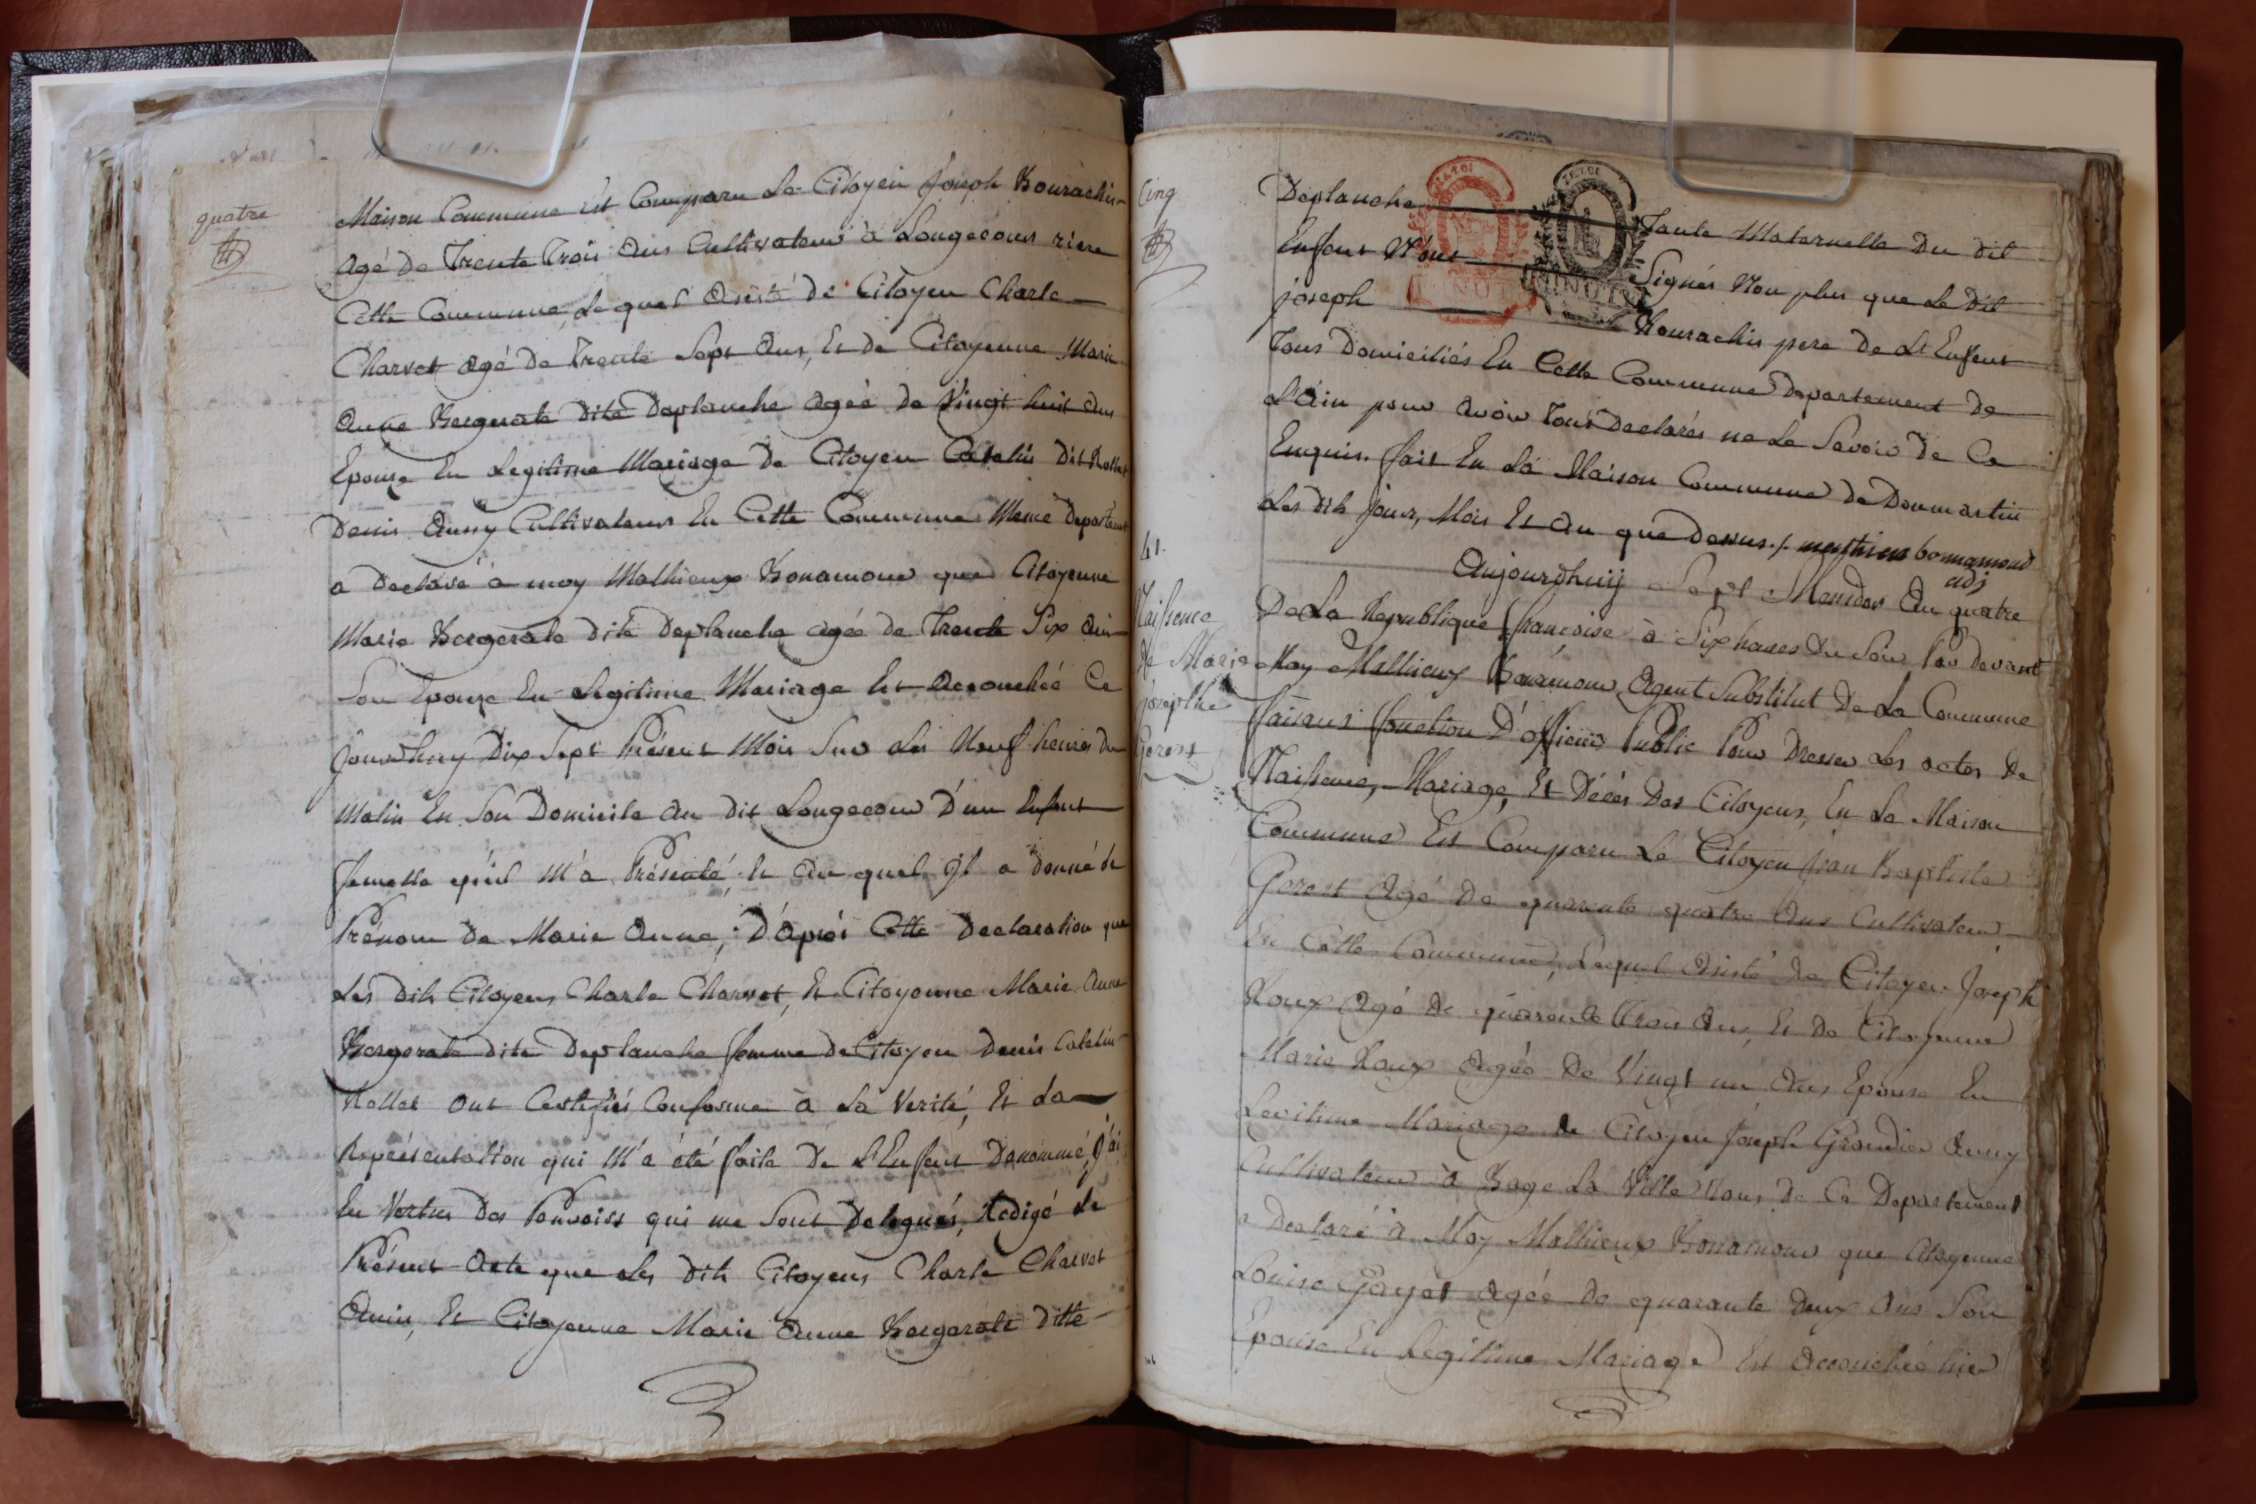 quatre
Maison Commune est Comparu Le Citoyen Joseph Bourachin
agé de Trente Trois ans Cultivateur à Longecour riere
Cette Commune, Le quel assisté de Citoyen Charle
Charvet agé de Trente Sept ans, Et de Citoyenne Marie
anne Bergerate dite Deplanche agée de Vingt huit ans
Epouse En Legitime Mariage de Citoyen Catelin dit Rollet
Denis aussy Cultivateur En Cette Commune Meme Departement
a declaré à moy Mathieux Bonamour que Citoyenne
Marie Bergerate dite Deplanche agée de Trente Six ans
Son Epouse En Legitime Mariage Est accouchée Ce
Jourdhuy Dix Sept Présent Mois Sur Les Neuf heures du
Matin En Son Domicile au dit Longecour d'un Enfant
femelle qu'il M'a Présenté, Et au quel Jl a donné le
Prénom de Marie anne, D'après Cette Declaration que
Les dits Citoyens Charle Charvet, Et Citoyenne Marie anne
Bergerate dite Deplanche femme de Citoyen Denis Catelin
Rollet ont Certifiés Conforme à La Verité, Et La
Représentation qui M'a été faite de L'Enfant Denommé, J'ai
En Vertus des Pouvoirs qui me Sont Delegués, Redigé Le
Présent acte que Les dits Citoyens Charle Charvet
amis, Et Citoyenne Marie anne Bergerate ditte
Cinq
Deplanche Tante Maternelle Du dit
Enfent N'ont Signés Non plus que Le Dit
joseph Bourachin pere de L'Enfent
Tous Domiciliés En Cette Commune Departement de
L'ain pour avoir Tous Declarés ne Le Savoir de Ce
Enquis. fait En La Maison Commune de Dommartin
Les dits Jour, Mois Et an que dessus./. mathieus bonnamoud
adj
41.
Naissence
de Marie
josephte
Gorost
Aujourdhuij Sept Messidor an quatre
De La Republique francoise à Six heures du Soir Par devant
Moy Mathieux Bonamour, Agent Substitut de La Commune
faisant fonction D'officier Public Pour Dresser Les actes de
Naissence, Mariage, Et Décès Des Citoyens, En La Maison
Commune Est Comparu Le Citoyen Jean Baptiste
Gorost agé de quarente quatre ans Cultivateur
En Cette Commune, Lequel assisté de Citoyen Joseph
Roux agé de quarente Trois ans, Et de Citoyenne
Marie Roux agée de Vingt un ans, Epouse En
Legitime Mariage de Citoyen Joseph Grandier aussy
Cultivateur à Bage La Ville de Ce Departement
a Declaré à Moy Mathieux Bonamour que Citoyenne
Louise Goyat agée de quarante deux ans Son
Epouse En Legitime Mariage Est accouchée hier